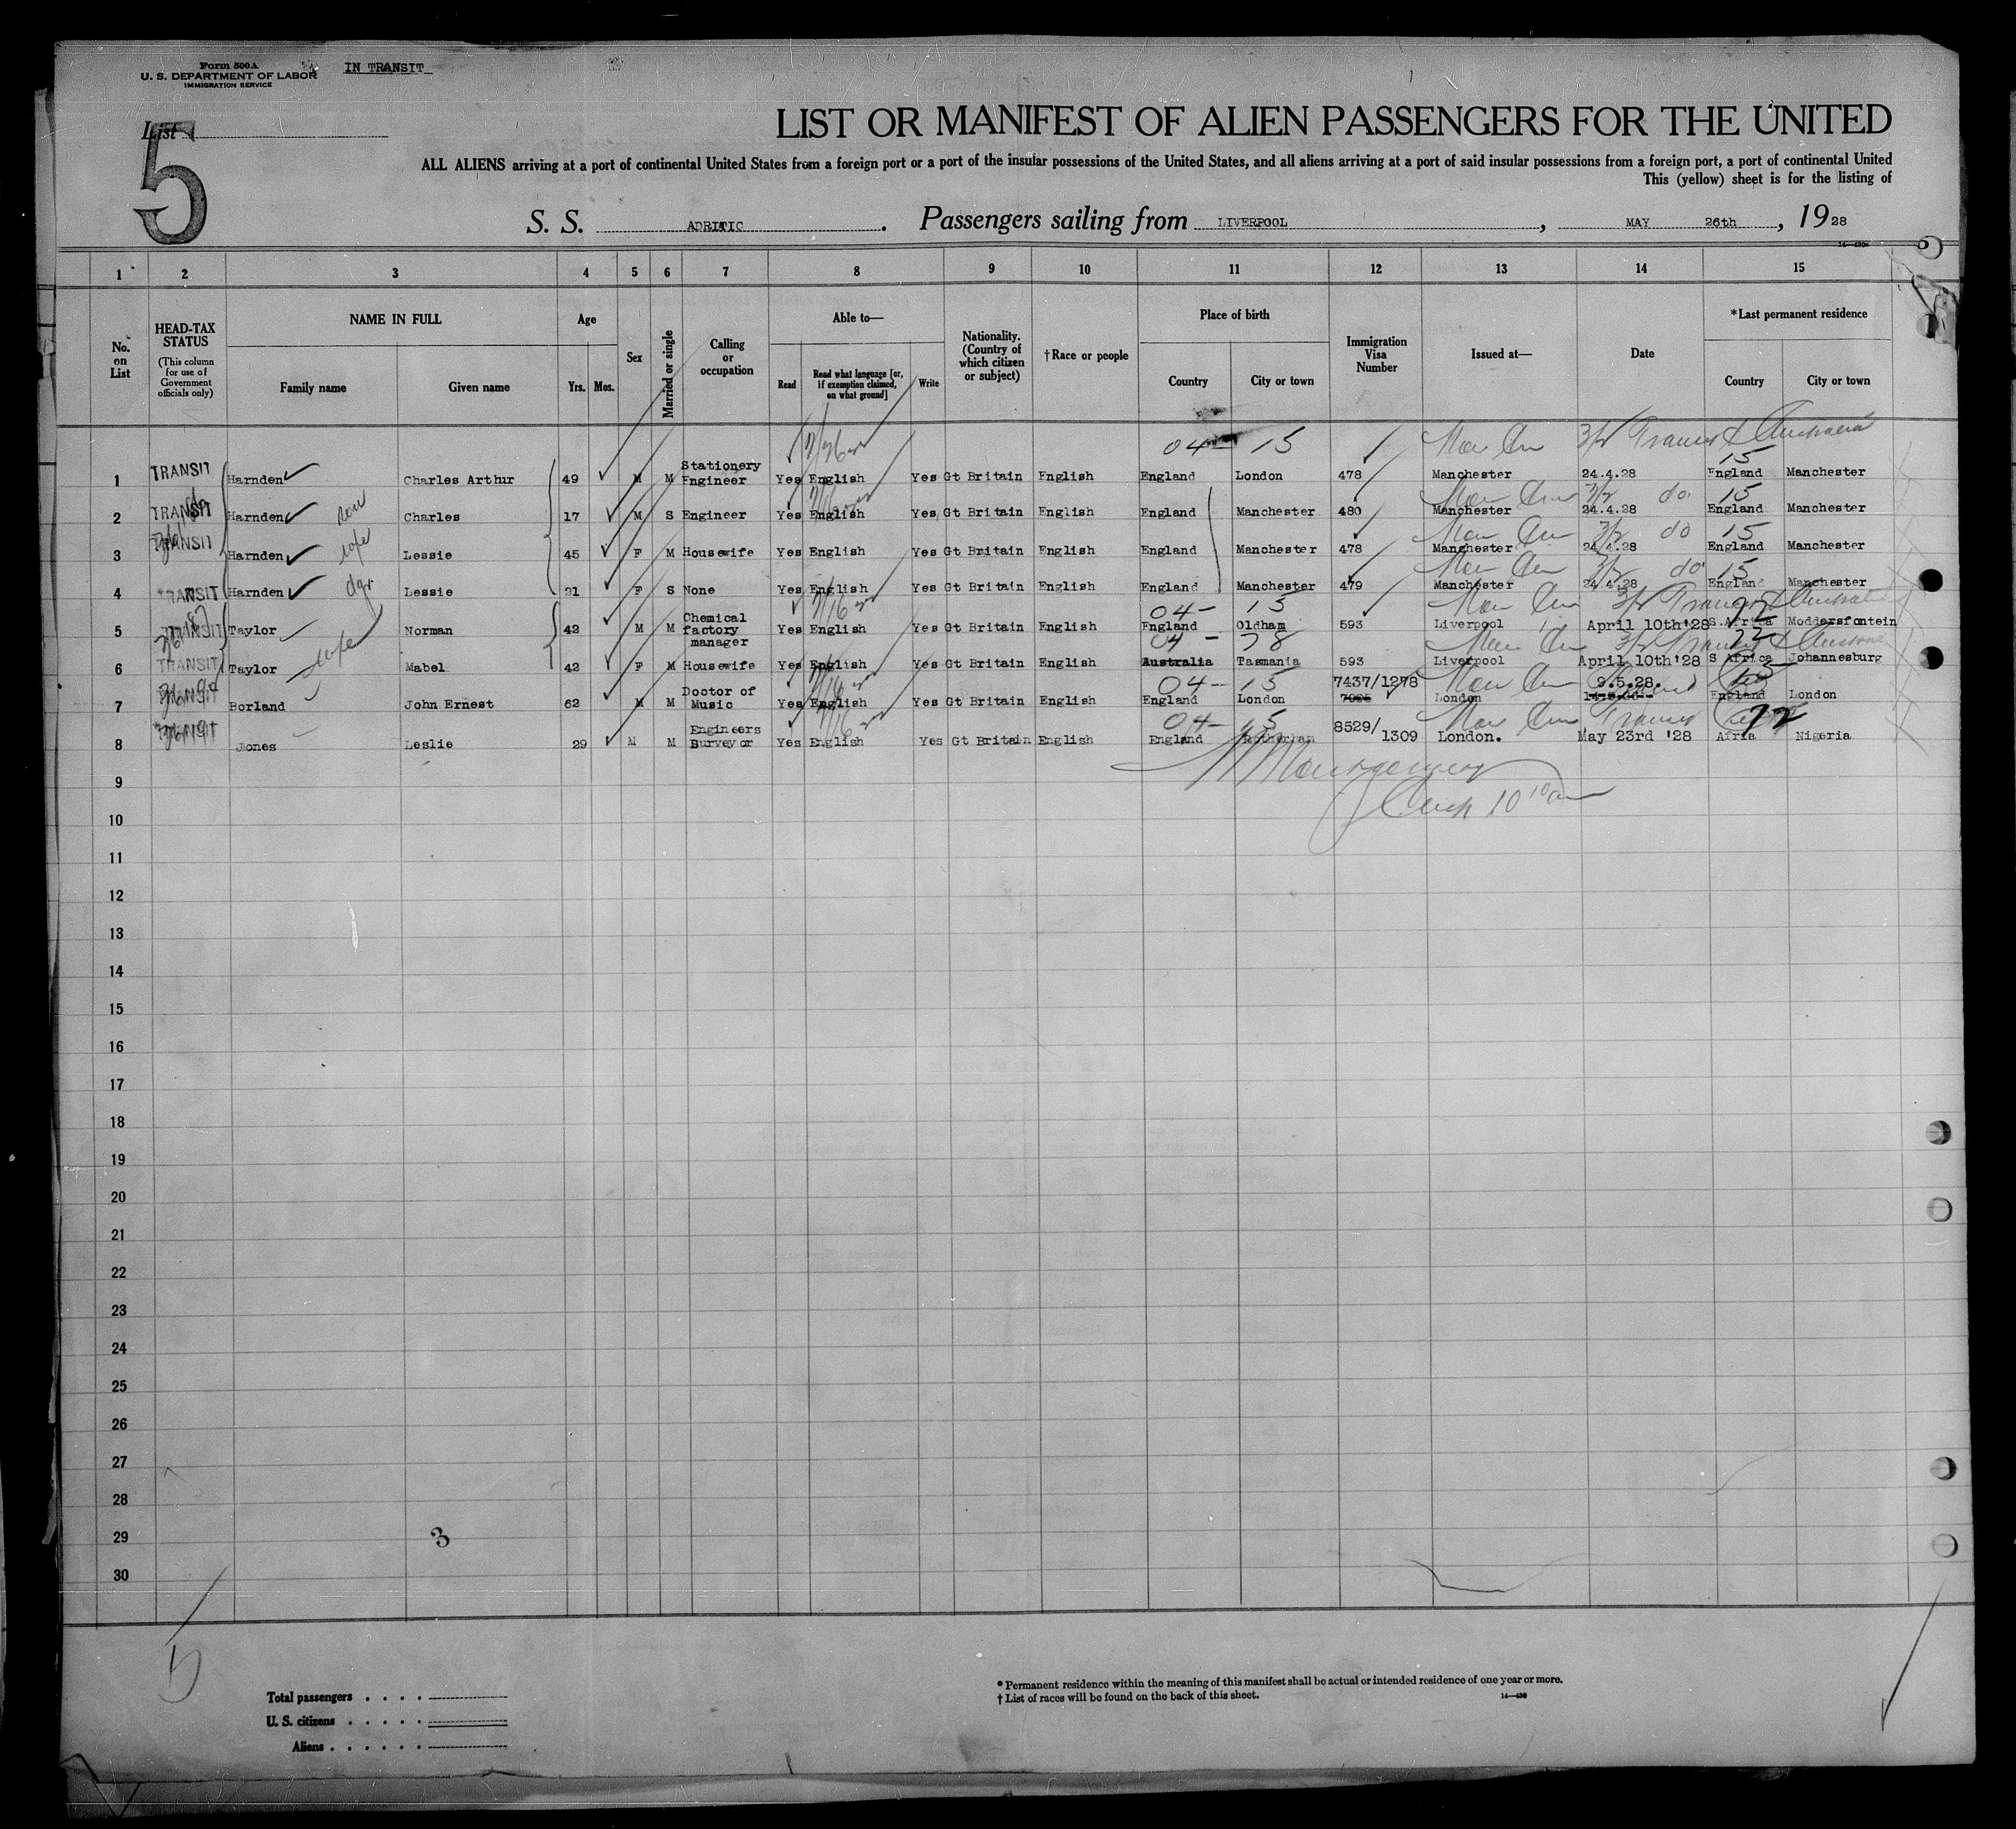 Form 500A
U. S. DEPARTMENT OF LABOR
IMMIGRATION SERVICE
IN TRANSIT
List
5
LIST OR MANIFEST OF ALIEN PASSENGERS FOR THE UNITED
ALL ALIENS arriving at a port of continental United States from a foreign port or a port of the insular possessions of the United States, and all aliens arriving at a port of said insular possessions from a foreign port, a port of continental United
This (yellow) sheet is for the listing of
S. S. ADRITIC . Passengers sailing from LIVERPOOL , MAY 26th , 1928
1 2 3 4 5 6 7 8 9 10 11 12 13 14 15
No. on List
HEAD-TAX STATUS
(This column for use of Government officials only)
NAME IN FULL
Family name Given name
Age
Yrs. Mos.
Sex
Married or single
Calling or occupation
Able to—
Read
Read what language [or, if exemption claimed, on what ground]
Write
Nationality. (Country of which citizen or subject)
†Race or people
Place of birth
Country City or town
Immigration Visa Number
Issued at—
Date
*Last permanent residence
Country City or town
04 - 15 3/2 Transit Australia
15
1 TRANSIT Harnden Charles Arthur 49 M M Stationery Engineer Yes English Yes Gt Britain English England London 478 Manchester 24.4.28 England Manchester
3/2 do 15
2 TRANSIT Harnden son Charles 17 M S Engineer Yes English Yes Gt Britain English England Manchester 480 Manchester 24.4.28 England Manchester
3/2 do 15
3 TRANSIT Harnden wife Lessie 45 F M Housewife Yes English Yes Gt Britain English England Manchester 478 Manchester 24.4.28 England Manchester
3/2 do 15
4 TRANSIT Harnden dgr Lessie 21 F S None Yes English Yes Gt Britain English England Manchester 479 Manchester 24.4.28 England Manchester
04 - 15 3/2 Transit Australia
5 TRANSIT Taylor Norman 42 M M Chemical factory manager Yes English Yes Gt Britain English England Oldham 593 Liverpool April 10th'28 S.Africa Moddersfontein
04 - 78 3/2 Transit 72
6 TRANSIT Taylor wife Mabel 42 F M Housewife Yes English Yes Gt Britain English Australia Tasmania 593 Liverpool April 10th '28 S Africa Johannesburg
04 - 15
7 TRANSIT Borland John Ernest 62 M M Doctor of Music Yes English Yes Gt Britain English England London 7437/1278 London 9.5.28. England London
04 - 15 Transit 72
8 TRANSIT Jones Leslie 29 M M Engineers Surveyor Yes English Yes Gt Britain English England 8529/1309 London. May 23rd '28 Afria Nigeria
Montgomery
10 10 am
9
10
11
12
13
14
15
16
17
18
19
20
21
22
23
24
25
26
27
28
29
3
30
5
Total passengers . . . .
U. S. citizens . . . . .
Aliens . . . . . .
* Permanent residence within the meaning of this manifest shall be actual or intended residence of one year or more.
† List of races will be found on the back of this sheet.
14—430